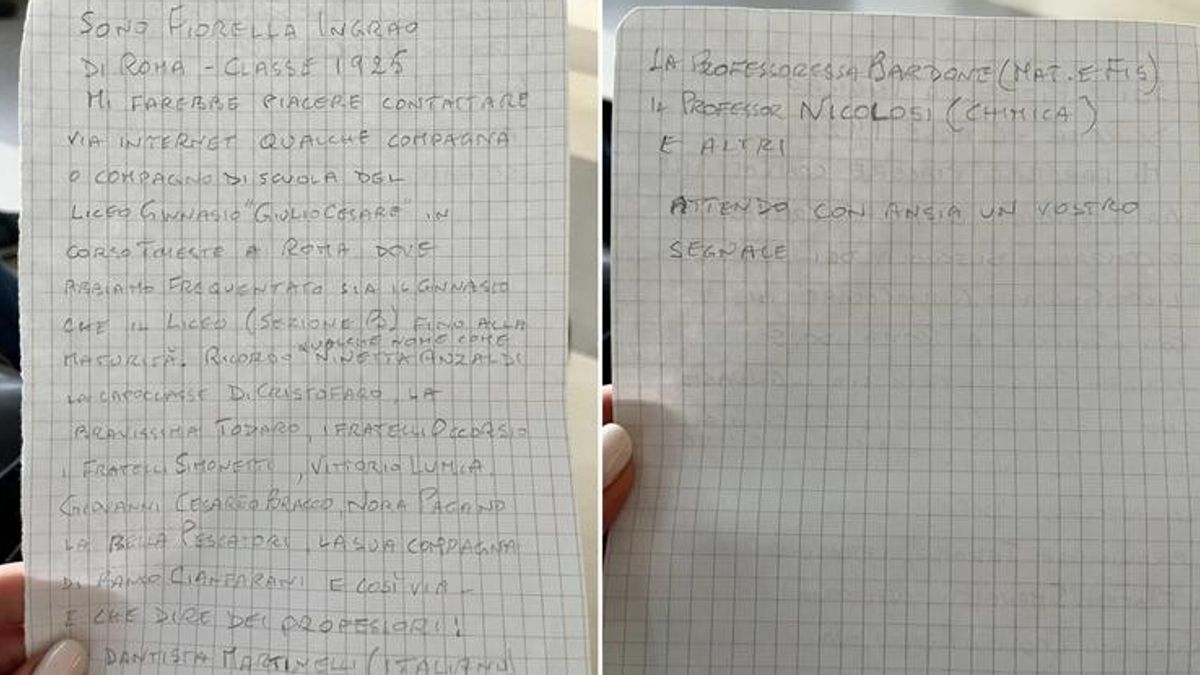 SONO FIORELLA INGRAO
DI ROMA - CLASSE 1925
MI FAREBBE PIACERE CONTATTARE
VIA INTERNET QUALCHE COMPAGNA
O COMPAGNO DI SCUOLA DEL
LICEO GINNASIO "GIULIO CESARE" IN
CORSO TRIESTE A ROMA DOVE
ABBIAMO FREQUENTATO SIA IL GINNASIO
CHE IL LICEO (SEZIONE B) FINO ALLA
MATURITÀ. RICORDO QUALCHE NOME COME NINETTA ANZALDI
LA CAPOCLASSE DI CRISTOFARO, LA
BRAVISSIMA TODARO, I FRATELLI OCCORSIO
I FRATELLI SIMONETTI, VITTORIO LUMIA
GIOVANNI CESAREO BRACCO, NORA PAGANO
LA BELLA PESCATORI, LA SUA COMPAGNA
DI BANCO CIANFARANI E COSÌ VIA -
E CHE DIRE DEI PROFESSORI!
DANTISTA MARTINELLI (ITALIANO)
LA PROFESSORESSA BARDONE (MAT. E FIS)
IL PROFESSOR NICOLOSI (CHIMICA)
E ALTRI
ATTENDO CON ANSIA UN VOSTRO
SEGNALE